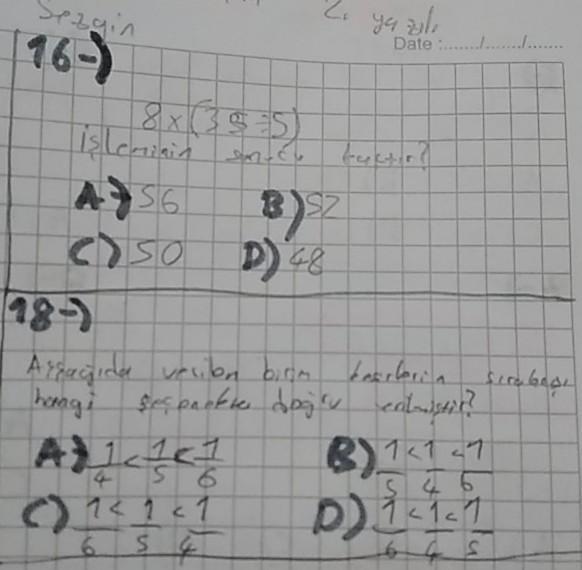 Sezgin 2. yazılı
Date :....../....../......
16-)
8 x (35÷5)
işleminin sonucu kaçtır?
A) 56 B) 52
C) 50 D) 48
18-)
Aşşağıda verilen birim kesirlerin sıralanışı
hangi seçenekte doğru verilmiştir?
A) 1/4 < 1/5 < 1/6 B) 1/5 < 1/4 < 1/6
C) 1/6 < 1/5 < 1/4 D) 1/6 < 1/4 < 1/5